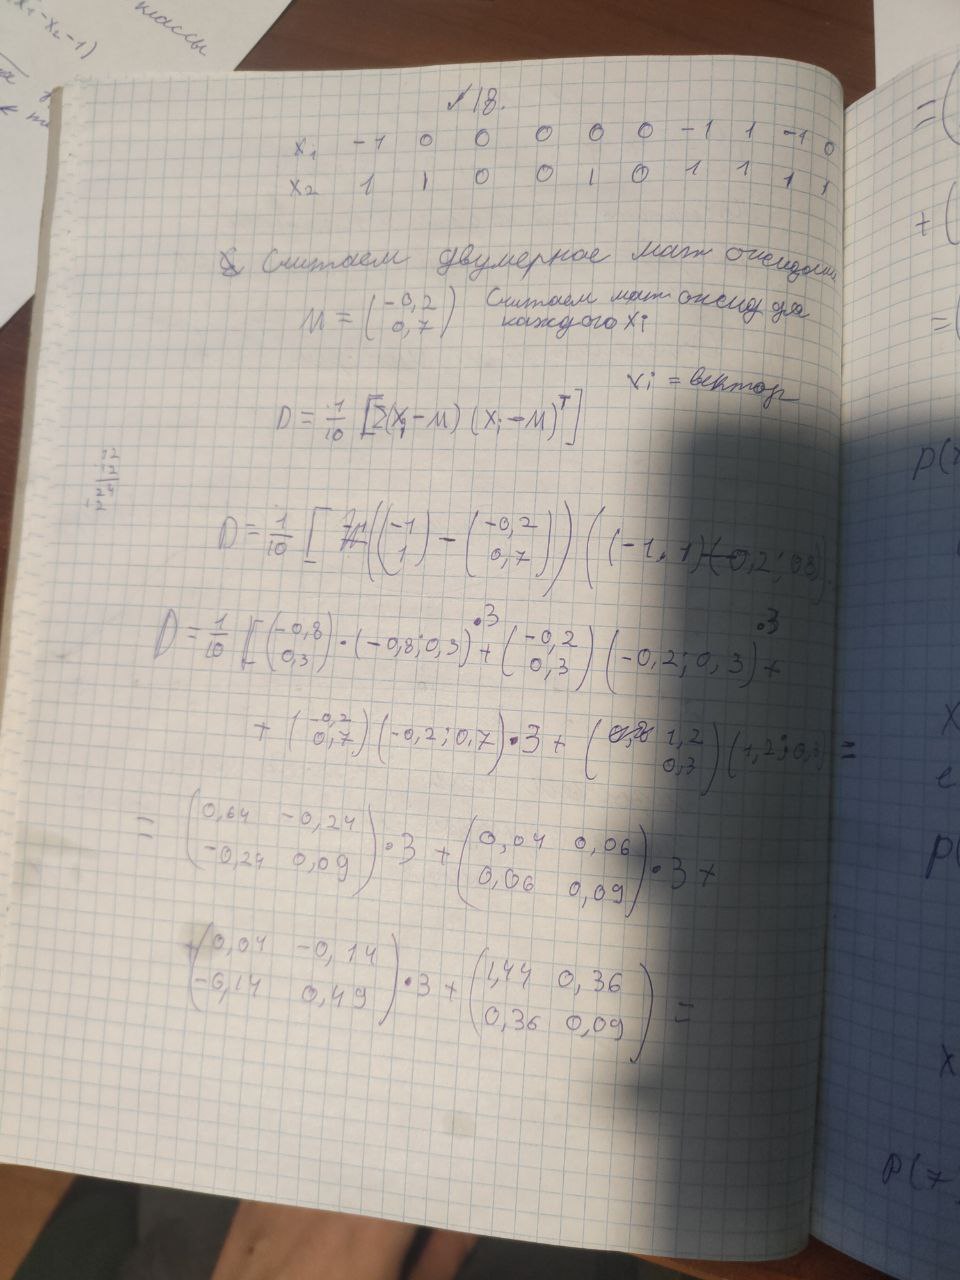 классы
x₁-x₂-1)
№18.
x₁ -1 0 0 0 0 0 -1 1 -1 0
x₂ 1 1 0 0 1 0 1 1 1 1
Считаем двумерное мат
M = (-0,2 0,7) Считаем мат ожид для каждого xi
xi = вектор
D = 1/10 [Σ(Xi - M) (Xi - M)ᵀ]
12
12
24
12
D = 1/10 [ ((-1 1) - (-0,2 0,7)) ((-1, 1) (-0,2; 0
D = 1/10 [(-0,8 0,3) · (-0,8; 0,3) ·3 + (-0,2 0,3) (-0,2; 0,3) ·3 +
+ (-0,2 0,7) (-0,2; 0,7) · 3 + (1,2 0,3) (1,2; 0,3) =
= (0,64 -0,24 -0,24 0,09) · 3 + (0,04 0,06 0,06 0,09) · 3 +
+ (0,04 -0,14 -0,14 0,49) · 3 + (1,44 0,36 0,36 0,09) =
= (
+ (
= (
p(
x
p(
x
p(